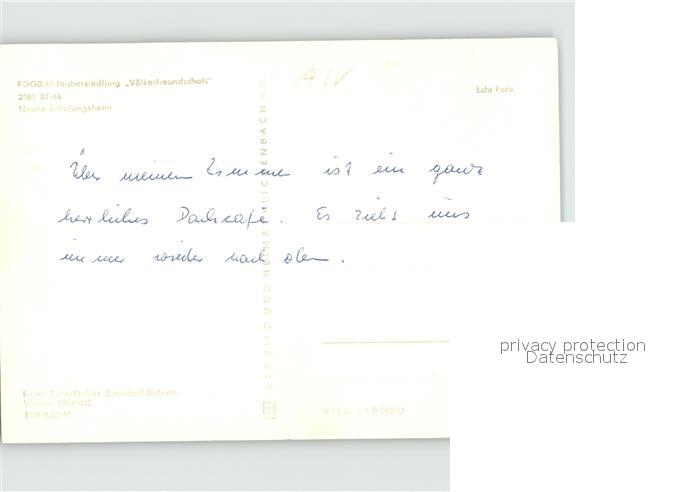 FDGB-Urlaubersiedlung „Völkerfreundschaft"
2061 Klink
Neues Erholungsheim
A/V
Echt Foto
Über meinem Zimmer ist ein ganz
herrliches Dachcafe. Es zieht uns
immer wieder nach oben.
VEB BILD UND HEIMAT REICHENBACH I. V.
privacy protection
Datenschutz
Foto: Turo-Atelier
Waren (Müritz)
EVP 0,20 M